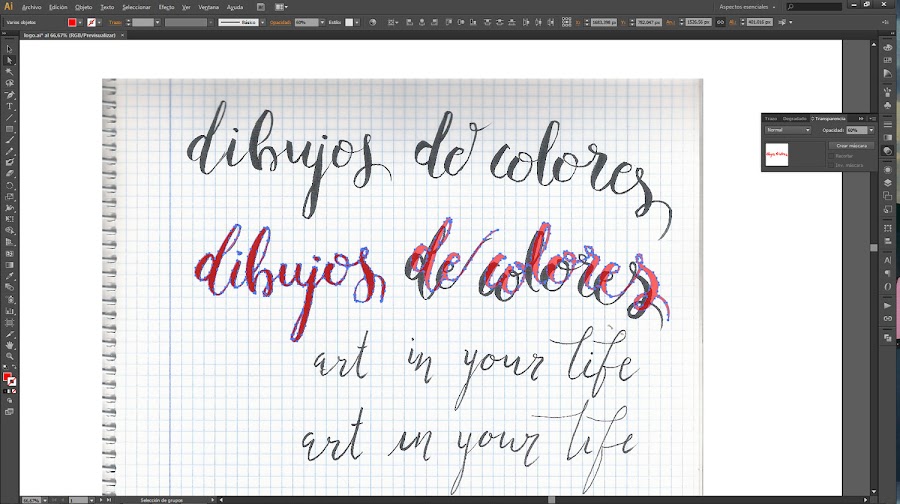 Ai Archivo Edición Objeto Texto Seleccionar Efecto Ver Ventana Ayuda Aspectos esenciales
Varios objetos Trazo: Básico Opacidad: 60% Estilo:
logo.ai* al 66,67% (RGB/Previsualizar) ×
dibujos de colores
Trazo Degradado Transparencia
Normal Opacidad: 60%
Crear máscara
Recortar
Inv. máscara
dibujos de colores
art in your life
art in your life
66,67% 1 Selección de grupos